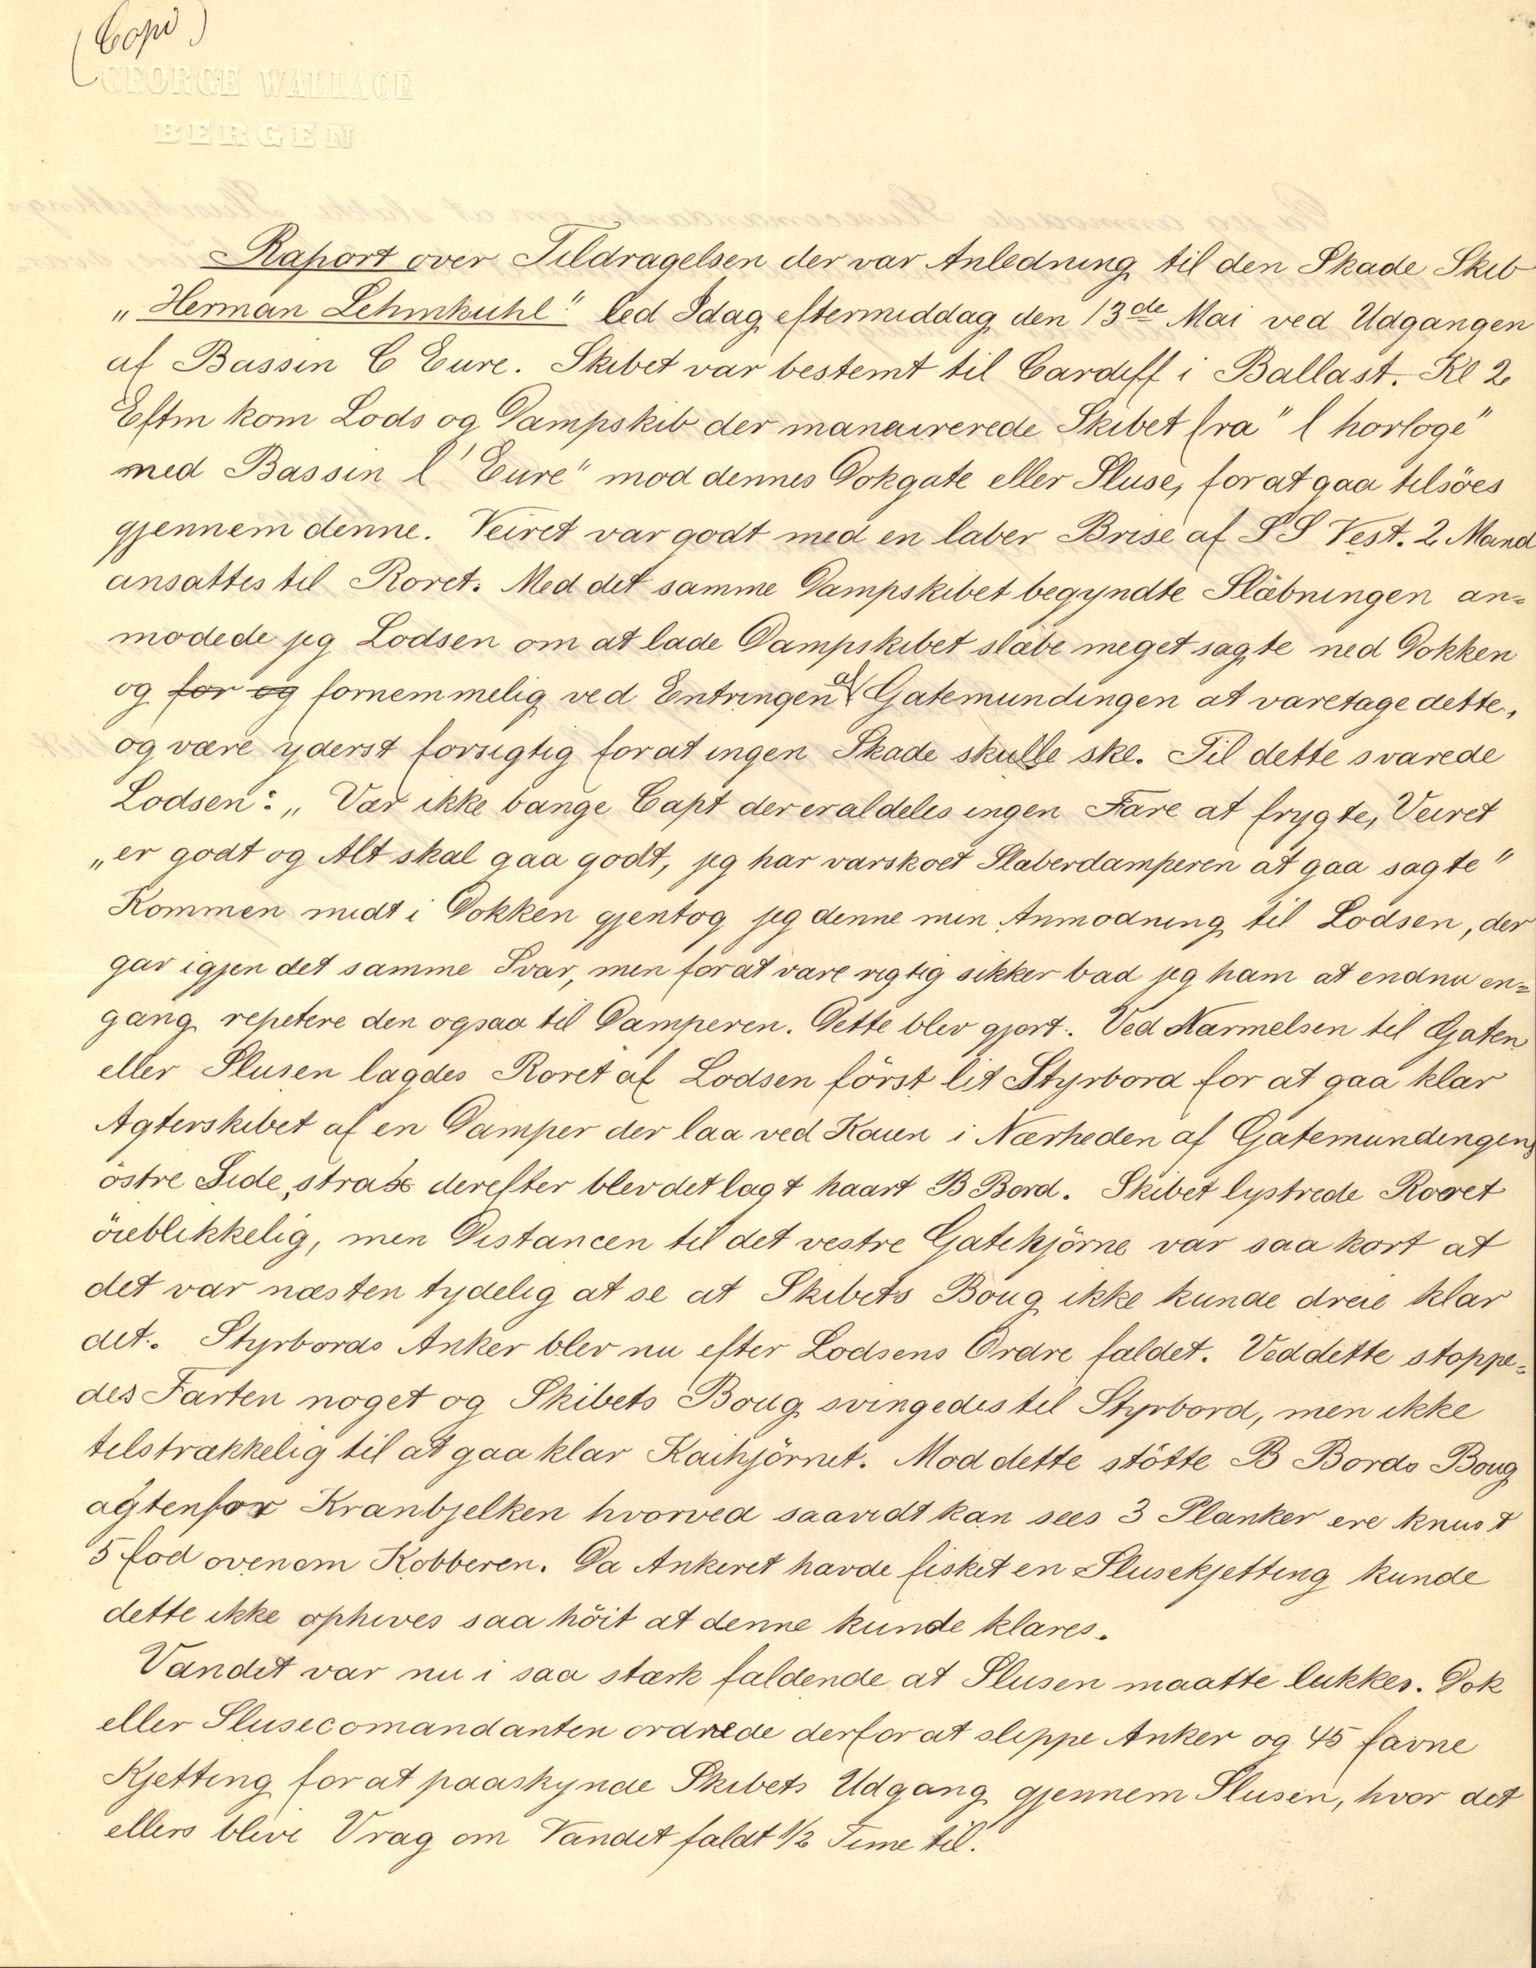 (Copi)
GEORGE WALLACE
BERGEN
Raport over Tildragelsen der var Anledning til den Skade Skib
„Herman Lehmkuhl" led Idag eftermiddag den 13de Mai ved Udgangen
af Bassin C Eure. Skibet var bestemt til Cardiff i Ballast. Kl 2
Eftm kom Lods og Dampskib der manøuvrerede Skibet fra "l horloge"
med Bassin l'Eure" mod dennes Dokgate eller Sluse, for at gaa tilsöes
gjennem denne. Veiret var godt med en laber Brise af S S Vest. 2 Mand
ansattes til Roret. Med det samme Dampskibet begyndte Slæbningen an=
modede jeg Lodsen om at lade Dampskibet slæbe meget sagte ned Dokken
og for og fornemmelig ved Entringen af Gatemundingen at varetage dette,
og være yderst forsigtig for at ingen Skade skulle ske. Til dette svarede
Lodsen: „Vær ikke bange Capt der er aldeles ingen Fare at frygte, Veiret
„er godt og Alt skal gaa godt, jeg har varskoet Slæberdamperen at gaa sagte"
Kommen midt i Dokken gjentog jeg denne min Anmodning til Lodsen, der
gav igjen det samme Svar, men for at være rigtig sikker bad jeg ham at endnu en=
gang repetere den ogsaa til Damperen. Dette blev gjort. Ved Nærmelsen til Gaten
eller Slusen lagdes Roret af Lodsen först lit Styrbord for at gaa klar
Agterskibet af en Damper der laa ved Kaien i Nærheden af Gatemundingens
östre Side, strax derefter blev det lagt haart B Bord. Skibet lystrede Roret
öieblikkelig, men Distancen til det vestre Gatehjörne var saa kort at
det var næsten tydelig at se at Skibets Boug ikke kunde dreie klar
det. Styrbords Anker blev nu efter Lodsens Ordre faldet. Ved dette stoppe=
des Farten noget og Skibets Boug svingedes til Styrbord, men ikke
tilstrækkelig til at gaa klar Kaihjörnet. Mod dette stötte B Bords Boug
agtenfor Kranbjelken hvorved saavidt kan sees 3 Planker ere knust
5 fod ovenom Kobberen. Da Ankeret havde fisket en Slusekjetting kunde
dette ikke ophives saa höit at denne kunde klares.
Vandet var nu i saa stærk faldende at Slusen maatte lukkes. Dok
eller Slusecomandanten ordrede derfor at slippe Anker og 45 favne
Kjetting for at paaskynde Skibets Udgang gjennem Slusen, hvor det
ellers blive Vrag om Vandet faldt 1/2 Time til.